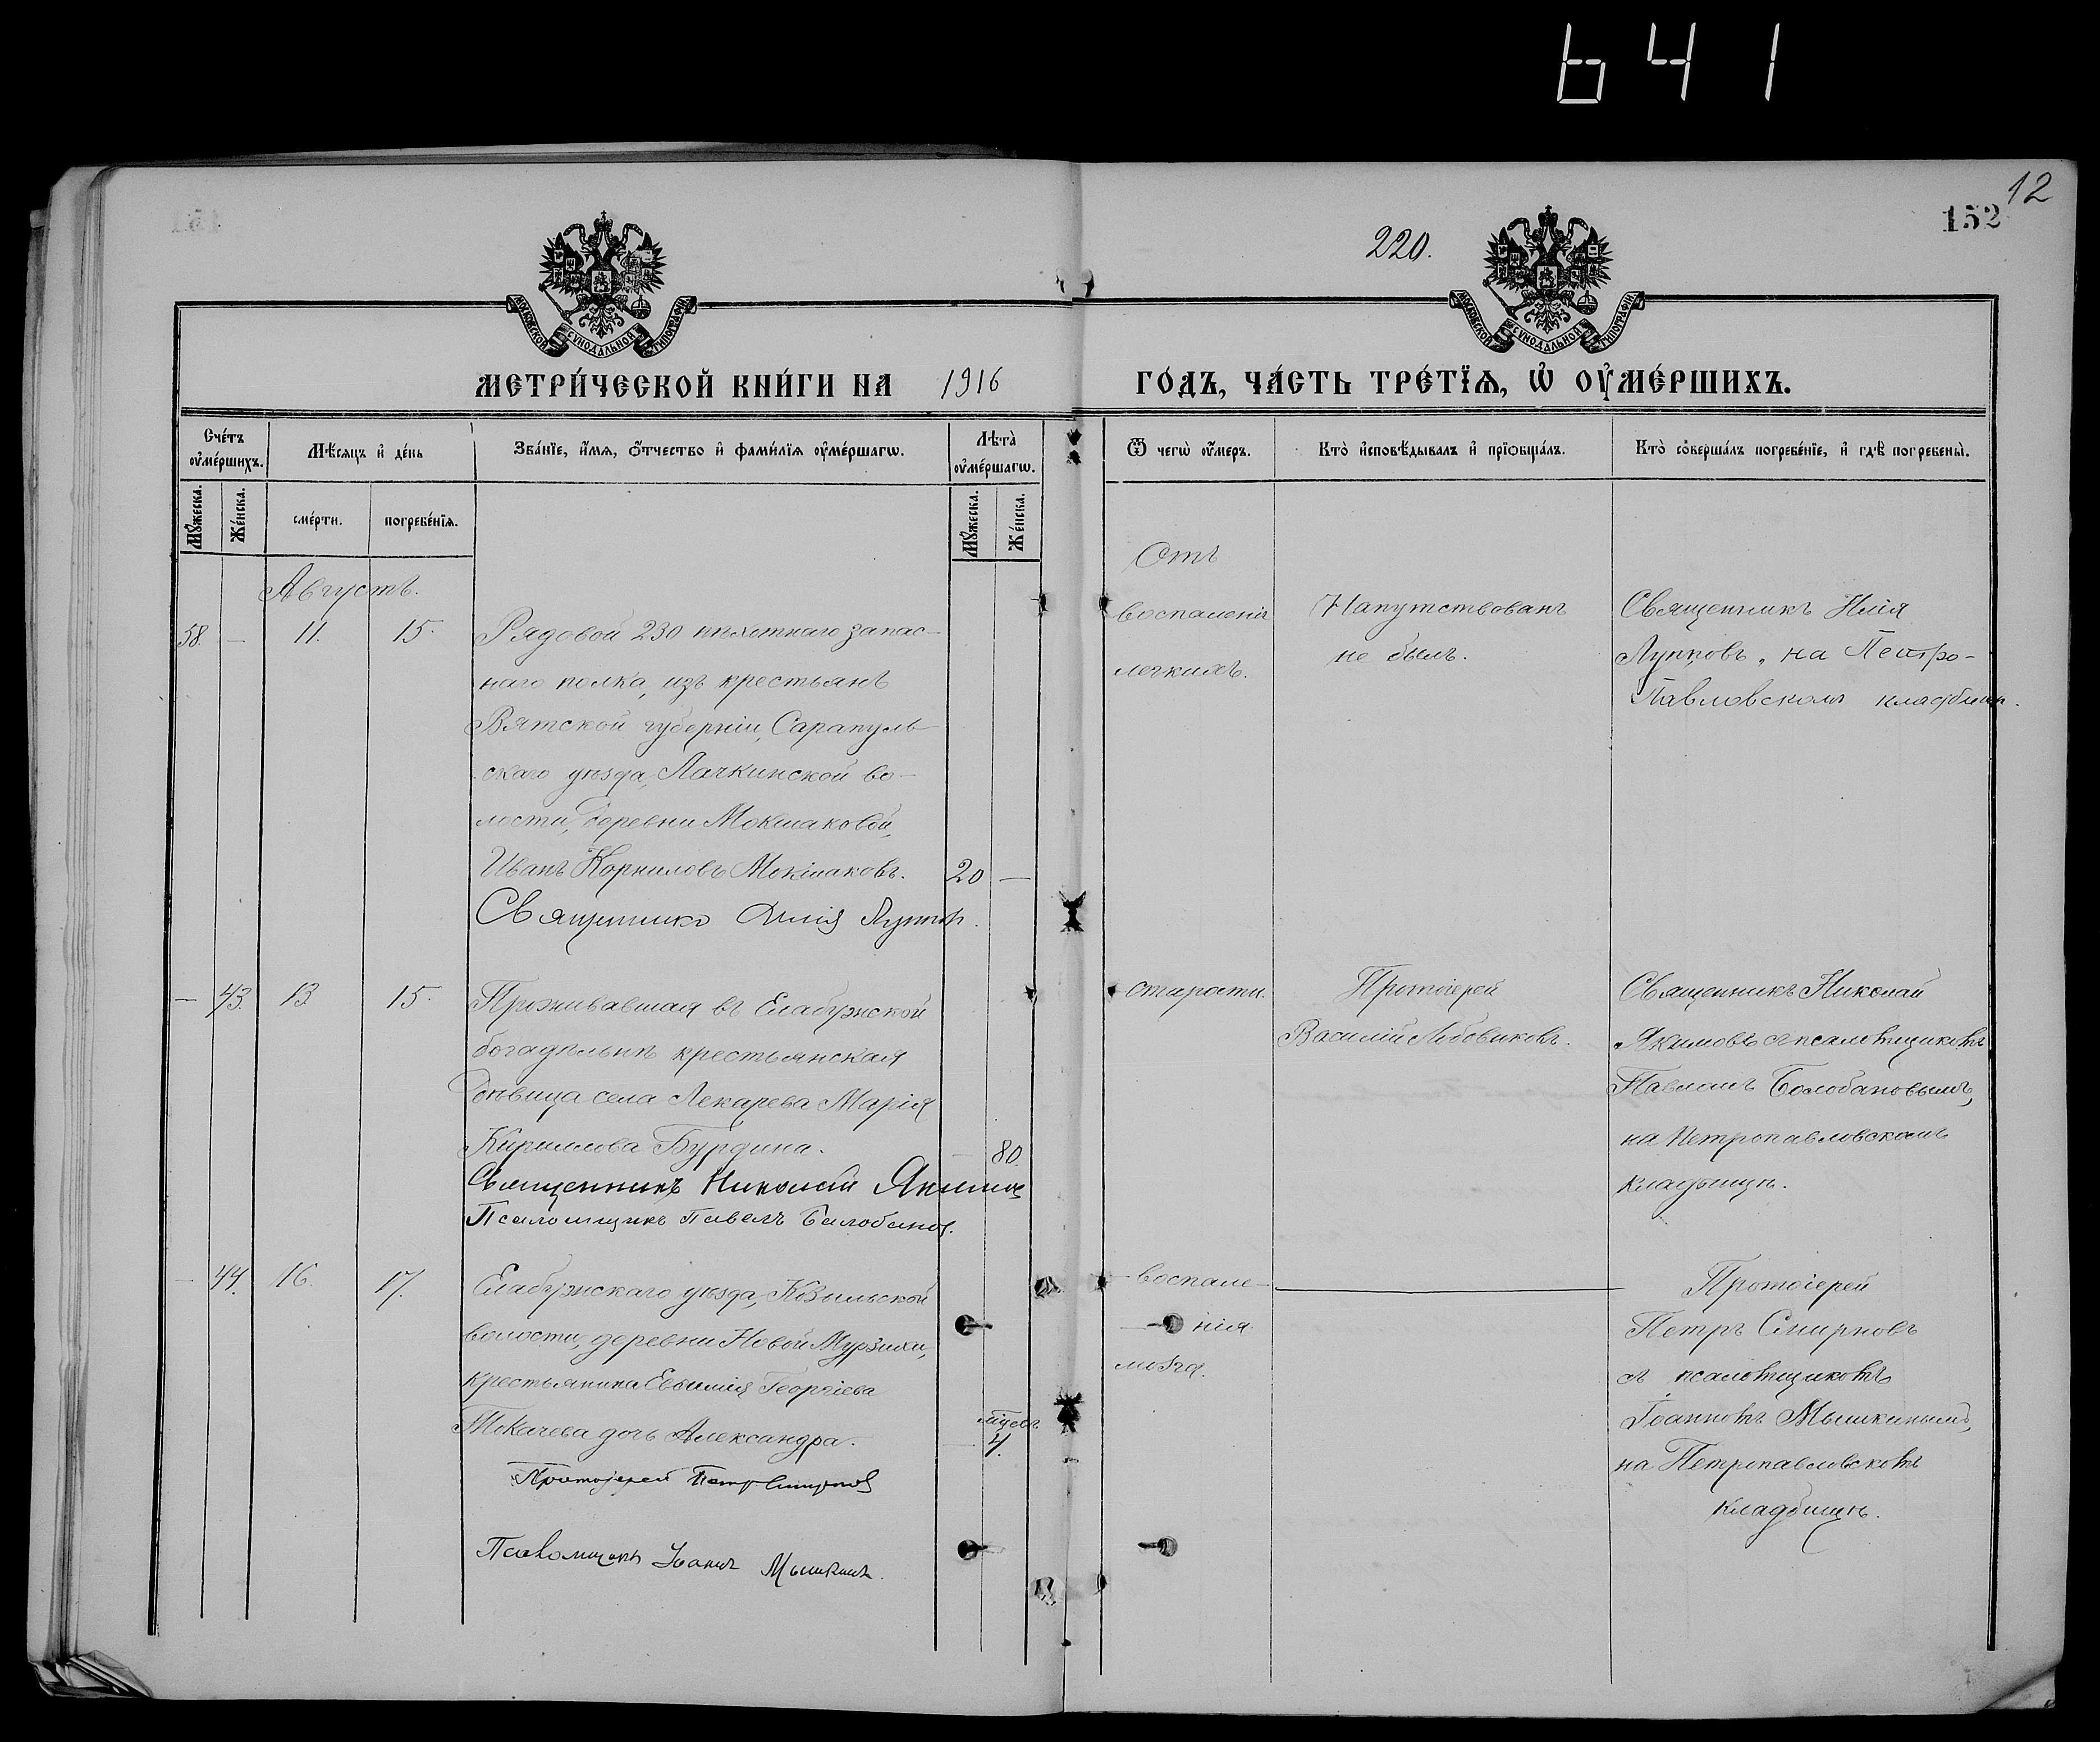 641
12
152
220.
МОСКОВСКОЙ СѴНОДАЛЬНОЙ ТИПОГРАФІИ
МОСКОВСКОЙ СѴНОДАЛЬНОЙ ТИПОГРАФІИ
МЕТРИ́ЧЕСКОЙ КНИ́ГИ НА 1916 ГО́ДЪ, ЧА́СТЬ ТРЕ́ТЇѦ, Ѡ҆ ОУ҆МЕ́РШИХЪ.
Сче́тъ оу҆ме́ршихъ.
Мѣ́сѧцъ и҆ де́нь
Зва́нїе, и҆́мѧ, ѻ҆́тчество и҆ фами́лїѧ оу҆ме́ршагѡ.
Лѣ́та оу҆ме́ршагѡ.
Ѿ чегѡ̀ оу҆́меръ.
Кто̀ и҆сповѣ́дывалъ и҆ прїѡбща́лъ.
Кто̀ соверша́лъ погребе́нїе, и҆ гдѣ̀ погребены̀.
Мꙋ́жеска.
Же́нска.
сме́рти.
погребе́нїѧ.
Мꙋ́жеска.
Же́нска.
Августъ.
58. — 11. 15.
Рядовой 230 пѣхотнаго запас-
наго полка, изъ крестьянъ
Вятской губерніи, Сарапуль-
скаго уѣзда, Лачкинской во-
лости, деревни Мокшаковой,
Иванъ Корниловъ Мокшаковъ. 20 —
Священникъ Илія Луппов.
Отъ
воспаленія
легкихъ.
Напутствованъ
не былъ.
Священникъ Илія
Лупповъ, на Петро-
Павловскомъ кладбищѣ.
— 43. 13 15.
Проживавшая въ Елабужской
богадѣльнѣ крестьянская
дѣвица села Лекарева Марія
Кириллова Бурдина. — 80.
Священникъ Николай Якимов
Псаломщикъ Павелъ Балобанов.
старости.
Протоіерей
Василій Лобовиковъ.
Священникъ Николай
Якимовъ съ псаломщикомъ
Павломъ Болобановымъ,
на Петропавловскомъ
кладбищѣ.
— 44. 16. 17.
Елабужскаго уѣзда, Козыльской
волости, деревни Новой Мурзихи,
крестьянина Евѳимія Георгіева
Токачева дочь Александра. — мѣсяц. 4.
Протоіерей Петр Смирнов
Псаломщикъ Іоаннъ Мышкинъ.
воспале-
нія
мозга.
Протоіерей
Петръ Смирновъ
съ псаломщикомъ
Іоанномъ Мышкинымъ,
на Петропавловскомъ
кладбищѣ.